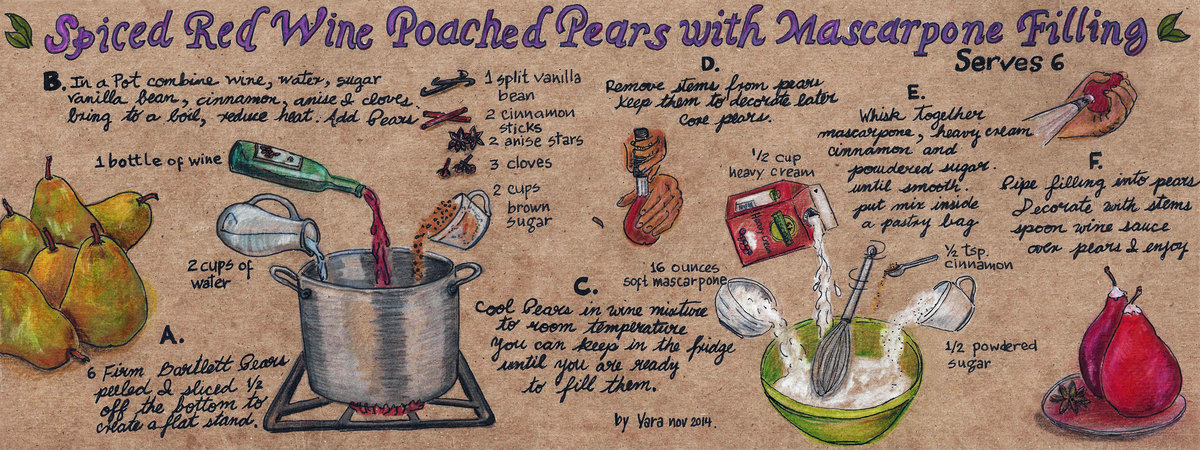 Spiced Red Wine Poached Pears with Mascarpone Filling
Serves 6
A.
6 Firm Bartlett Pears
peeled & sliced 1/2
off the bottom to
create a flat stand.
B. In a Pot combine wine, water, sugar
vanilla bean, cinnamon, anise & cloves.
bring to a boil, reduce heat. Add Pears
1 bottle of wine
2 cups of
water
1 split vanilla
bean
2 cinnamon
sticks
2 anise stars
3 cloves
2 cups
brown
sugar
C.
Cool Pears in wine mixture
to room temperature
You can keep in the fridge
until you are ready
to fill them.
D.
Remove stems from pears
keep them to decorate later
core pears.
E.
Whisk together
mascarpone, heavy cream
cinnamon and
powdered sugar.
until smooth.
put mix inside
a pastry bag
1/2 cup
heavy cream
Heavy Cream
16 ounces
soft mascarpone
1/2 tsp.
cinnamon
1/2 powdered
sugar
F.
Pipe filling into pears
Decorate with stems
spoon wine sauce
over pears & enjoy
by Yara nov 2014.